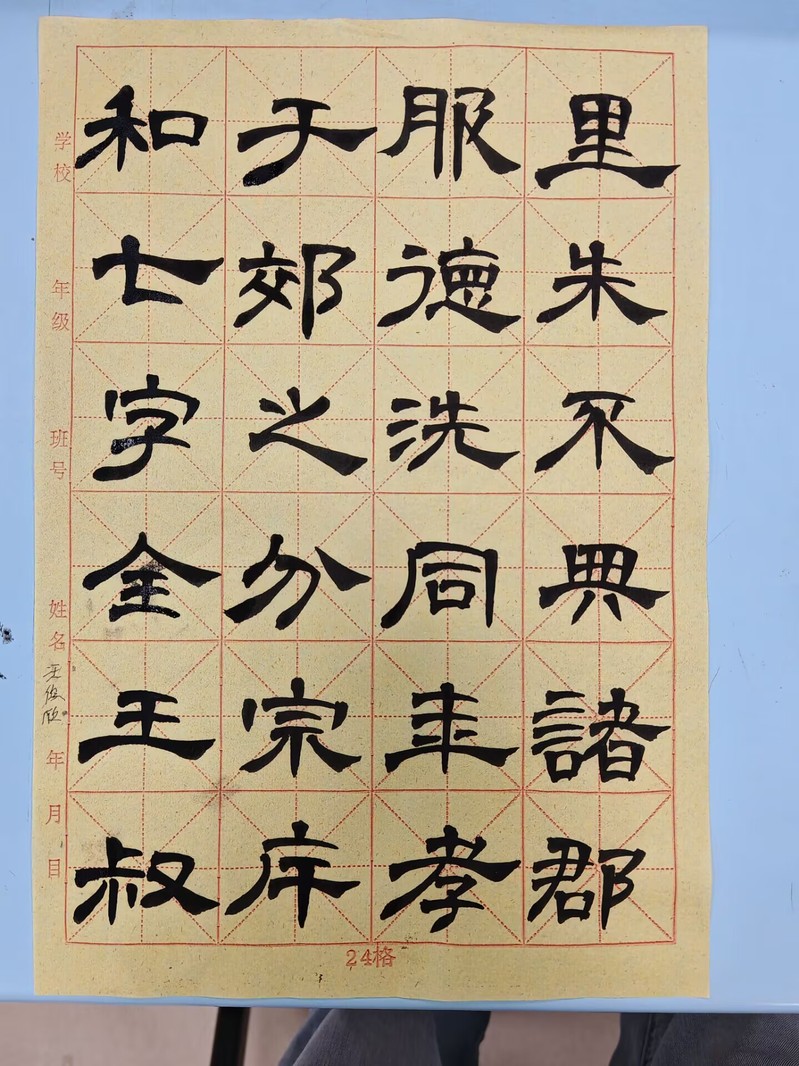 里朱不典諸郡
服德洗同孝
于郊之分宗
和七字全王叔
学校 年级 班号 姓名 王俊欣 年 月 日
24格